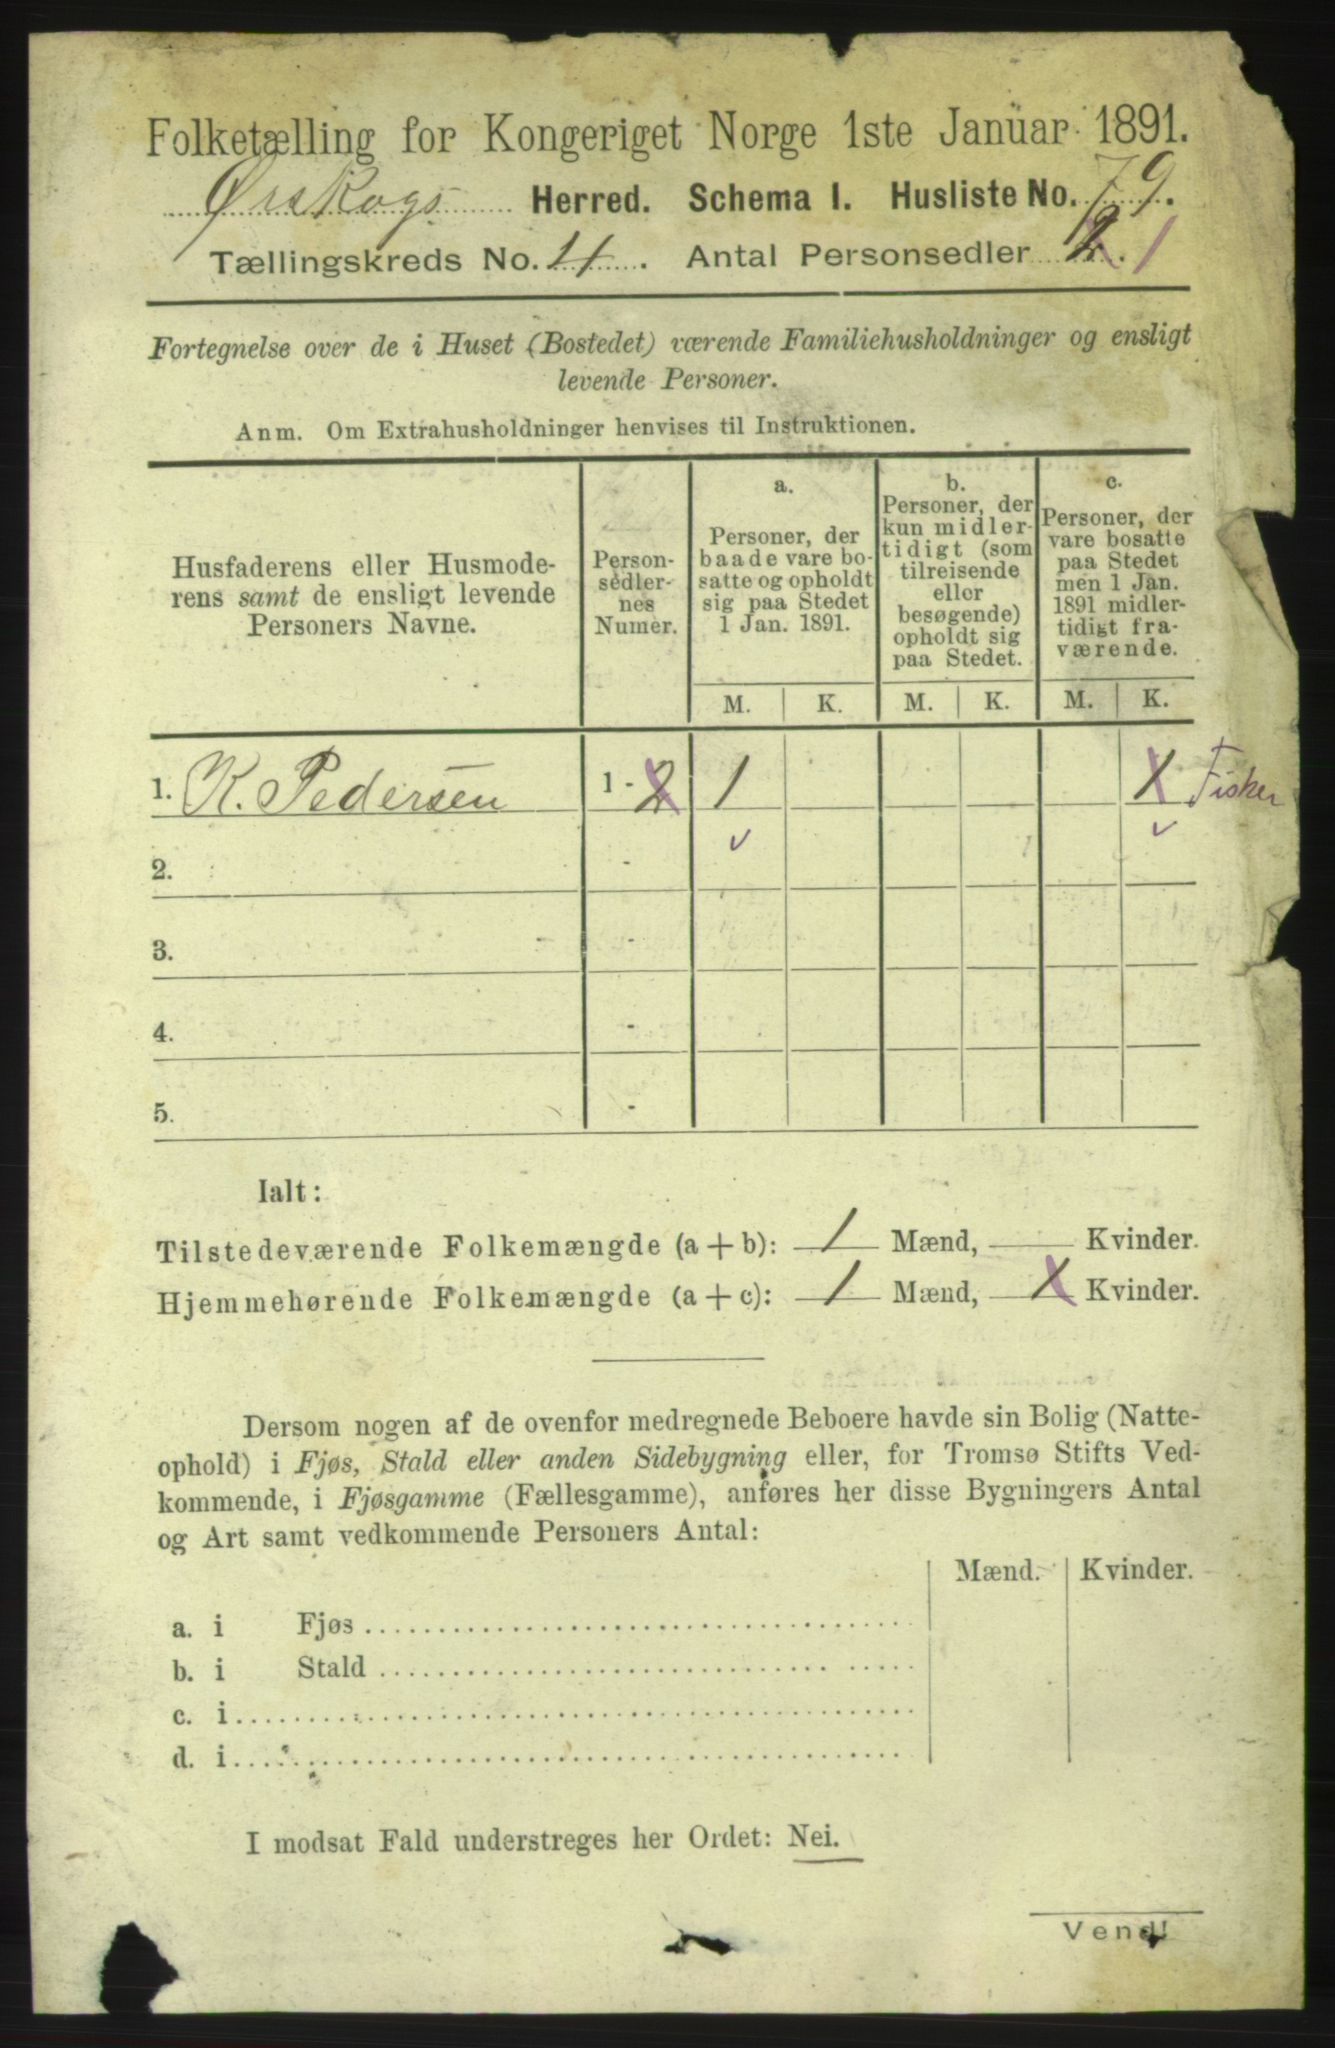 Folketælling for Kongeriget Norge 1ste Januar 1891.
Ørskogs Herred. Schema I. Husliste No. 79.
Tællingskreds No. 4. Antal Personsedler 2. 1
Fortegnelse over de i Huset (Bostedet) værende Familiehusholdninger og ensligt
levende Personer.
Anm. Om Extrahusholdninger henvises til Instruktionen.
Husfaderens eller Husmode-
rens samt de ensligt levende
Personers Navne.
Person-
sedler-
nes
Numer.
a.
Personer, der
baade vare bo-
satte og opholdt
sig paa Stedet
1 Jan. 1891.
b.
Personer, der
kun midler-
tidigt (som
tilreisende
eller
besøgende)
opholdt sig
paa Stedet.
c.
Personer, der
vare bosatte
paa Stedet
men 1 Jan.
1891 midler-
tidigt fra-
værende.
M. K. M. K. M. K.
1. K. Pedersen 1 - 2 1 1 Fisker
2. -
3. -
4. -
5. -
Ialt:
Tilstedeværende Folkemængde (a + b): 1 Mænd, Kvinder.
Hjemmehørende Folkemængde (a + c): 1 Mænd, 1 Kvinder.
Dersom nogen af de ovenfor medregnede Beboere havde sin Bolig (Natte-
ophold) i Fjøs, Stald eller anden Sidebygning eller, for Tromsø Stifts Ved-
kommende, i Fjøsgamme (Fællesgamme), anføres her disse Bygningers Antal
og Art samt vedkommende Personers Antal:
Mænd. Kvinder.
a. i Fjøs
b. i Stald
c. i
d. i
I modsat Fald understreges her Ordet: Nei.
Vend!